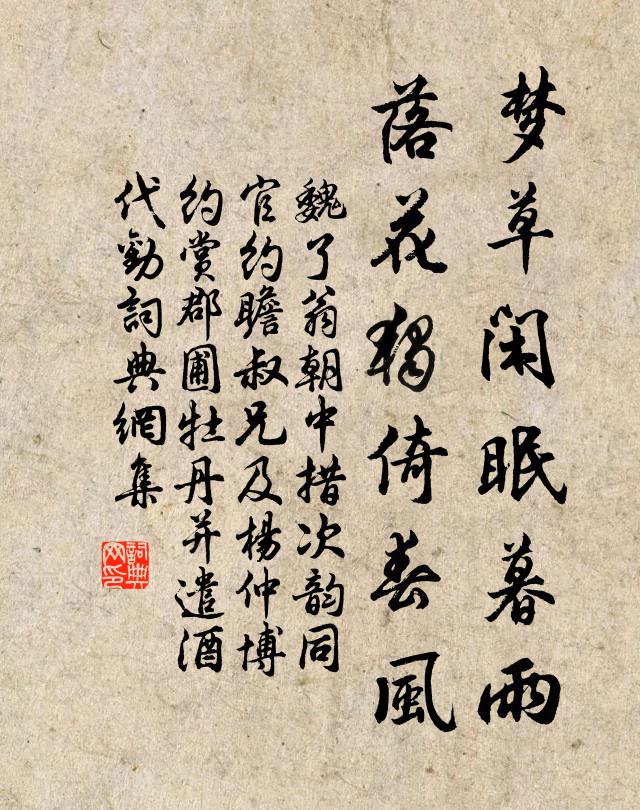 梦草闲眠暮雨
落花独倚春風
魏了翁朝中措次韵同
官约瞻叔兄及楊仲博
约赏郡圃牡丹并遣酒
代勸詞典網集
詞典
网印